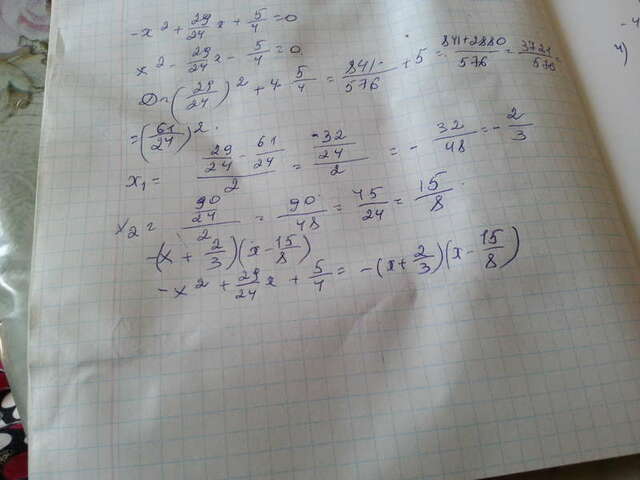 -x² + 29/24 x + 5/4 = 0
x² - 29/24 x - 5/4 = 0
D = (29/24)² + 4 · 5/4 = 841/576 + 5 = 841+2880/576 = 3721/576 =
= (61/24)².
x₁ = (29/24 - 61/24)/2 = (-32/24)/2 = - 32/48 = - 2/3
x₂ = (90/24)/2 = 90/48 = 45/24 = 15/8.
-(x + 2/3)(x - 15/8)
-x² + 29/24 x + 5/4 = -(x + 2/3)(x - 15/8)